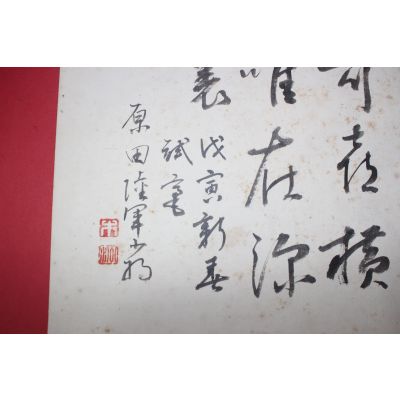 喜横
唯在深
裏
戊寅新春
試毫
原田陸軍少将